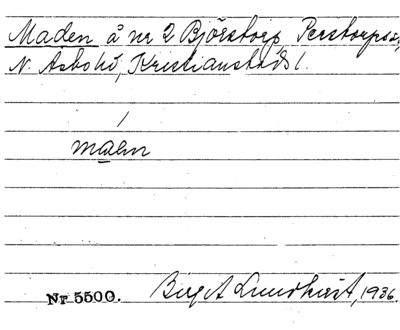 Maden å nr 2 Björstorp, Perstorps s,
N. Åsbo hd, Kristianstads l.
maden
Nr 5500. Birgit Lundkvist, 1936.